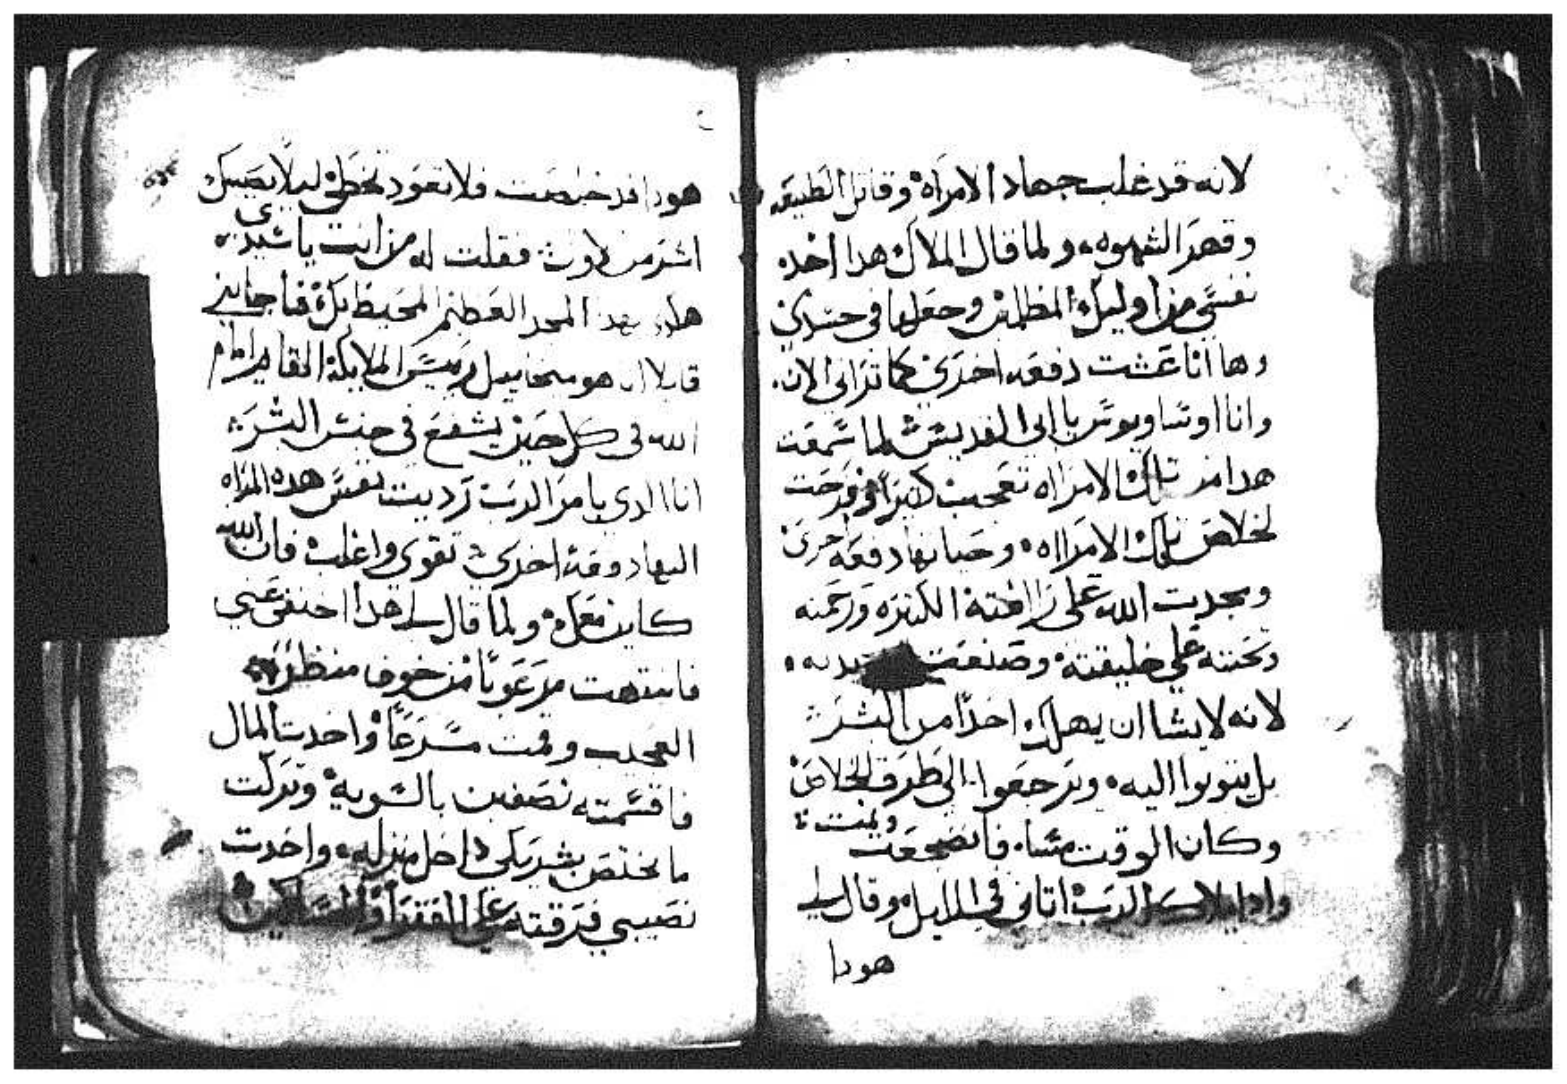 لانه قد غلب جهاد الامراه وقاتل الطبيعه
وقهر الشهوه ولما قال الملاك هدا اخد
نفسي من اوليك المظلمين وجعلها في جسدي
وها انا عشت دفعه اخرى كما تراني الان
وانا اوساويوس يا ابي القديس لما سمعت
هدا من تلك الامراه تعجبت كتيرا وفرحت
لخلاص تلك الامراه وحياتها دفعه اخرى
ومجدت الله على رافته الكتيره ورحمته
وتحننه على خليقته وصنعت
لانه لا يشا ان يهلك احدا من البشر
بل يتوبوا اليه ويرجعوا الى طرق الخلاص
وكان الوقت مسا فانضجعت ونمت
وادا بملاك الرب اتاني في الليل وقال لي
هودا
هودا قد خلصت فلا تعود تخطي ليلا يصيبك
اشر من الاول فقلت له من انت يا سيدي
هكدا بهدا المجد العظيم المحيط بك فاجابني
قايلا انا هو ميخاييل رييس الملايكه القايم امام
الله في كل حين يشفع في جنس البشر
انا الدي بامر الرب رديت نفس هده المراه
اليها دفعه اخرى تقوى واغلب فان الله
كاين معك ولما قال لي هدا اختفى عني
فانتبهت مرعوبا من خوف منظره
العجيب وقمت مسرعا واخدت المال
فاقسمته نصفين بالسويه وتركت
ما يختص بشريكي داخل منزله واخدت
نصيبي فرقته على الفقرا والمساكين